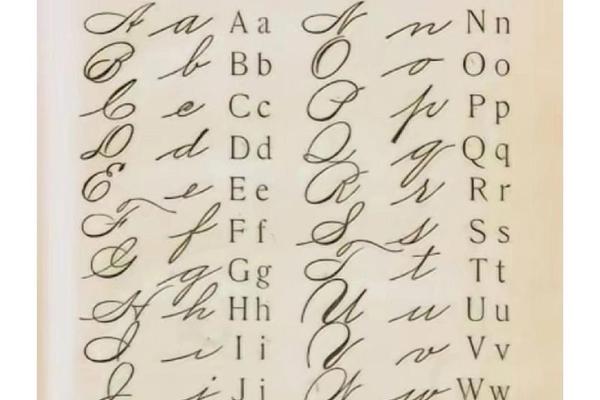 A a A a N n N n
B b B b O o O o
C c C c P p P p
D d D d Q q Q q
E e E e R r R r
F f F f S s S s
G g G g T t T t
H h H h U u U u
I i I i V v V v
J j J j W w W w